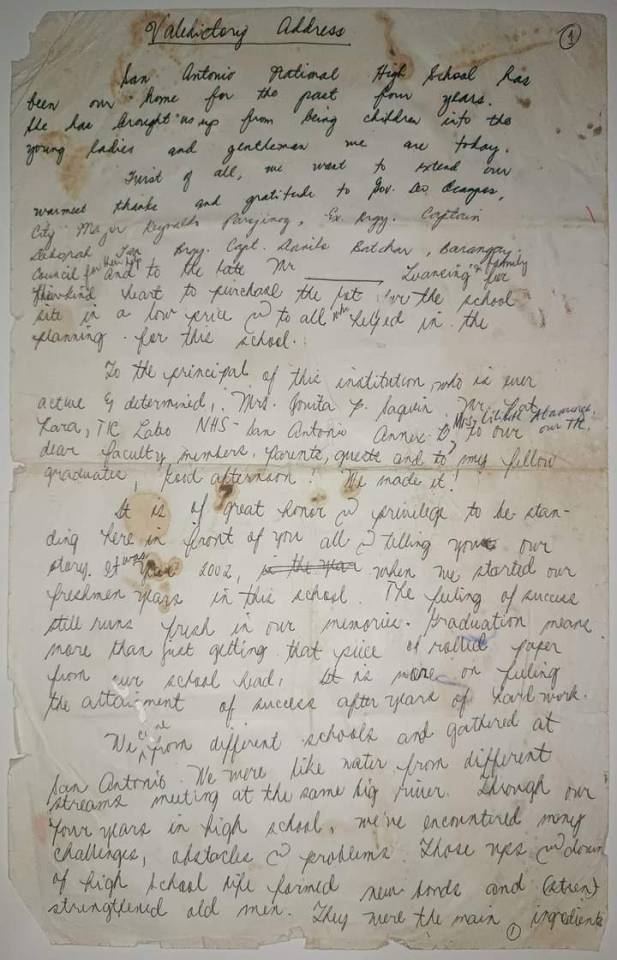 Valedictory Address
1
San Antonio National High School has
been our home for the past four years.
She has brought us up from being children into the
young ladies and gentleman we are today.
First of all, we want to extend our
warmest thanks and gratitude to Gov. Leo Ocampos,
City Mayor Reynaldo Parojinog, Ex. Brgy. Captain
Deborah Brgy. Capt. Danilo Batchar, Barangay
Council for and to the late Mr Luansing & family for
heart to purchase the lot for the school
site in a low price & to all who helped in the
planning for this school.
To the principal of this institution, who is ever
active & determined, Mrs. Jovita Mr.
Lara, TIC Labo NHS - San Antonio Annex Mrs. our TIC.
to our
dear faculty members, parents, guests and to my fellow
graduates, good afternoon! We made it!
It is of great honor & privilege to be stan-
ding here in front of you all & telling you our
story. It was year 2002, in the year when we started our
freshmen years in this school. The feeling of success
still runs fresh in our memories. Graduation means
more than just getting that piece of rolled paper
from our school head. It is more on feeling
the attainment of success after years of hard work.
We came from different schools and gathered at
San Antonio. We were like water from different
streams meeting at the same big river. Through our
four years in high school, we've encountered many
challenges, obstacles & problems. Those ups & down
of high school life formed new bonds and (stren)
strengtened old men. They were the main ingredients
1